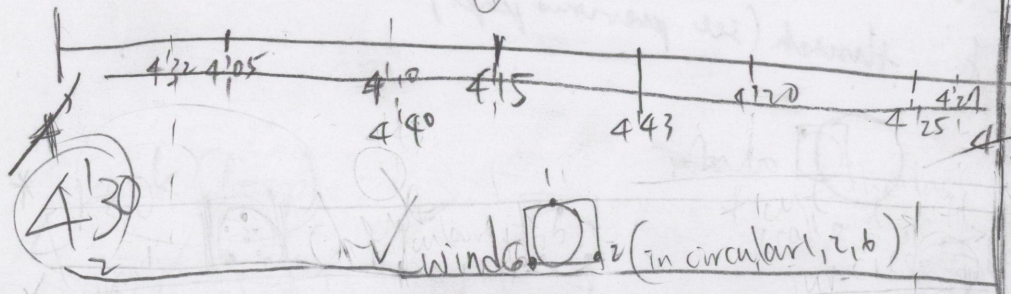 4'22 4'05 4'10 4'15 4'20 4'25 4'27
4'40 4'43
4'30
wind 6 2 (in circular 1, 2, 6)